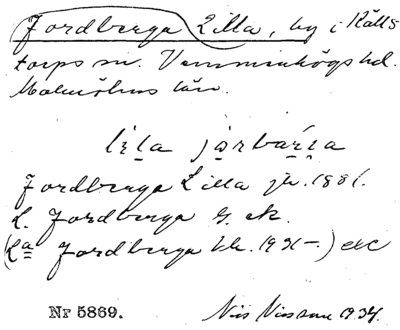 Jordberga Lilla, by i Källs
torps sn. Vemmenhögs hd.
Malmöhus län.
lịla jọrbarịa
Jordberga Lilla jb. 1881.
L. Jordberga G. ek.
(La Jordberga kb. 1931-) etc
Nr 5869. Nils Nilsson 1934.